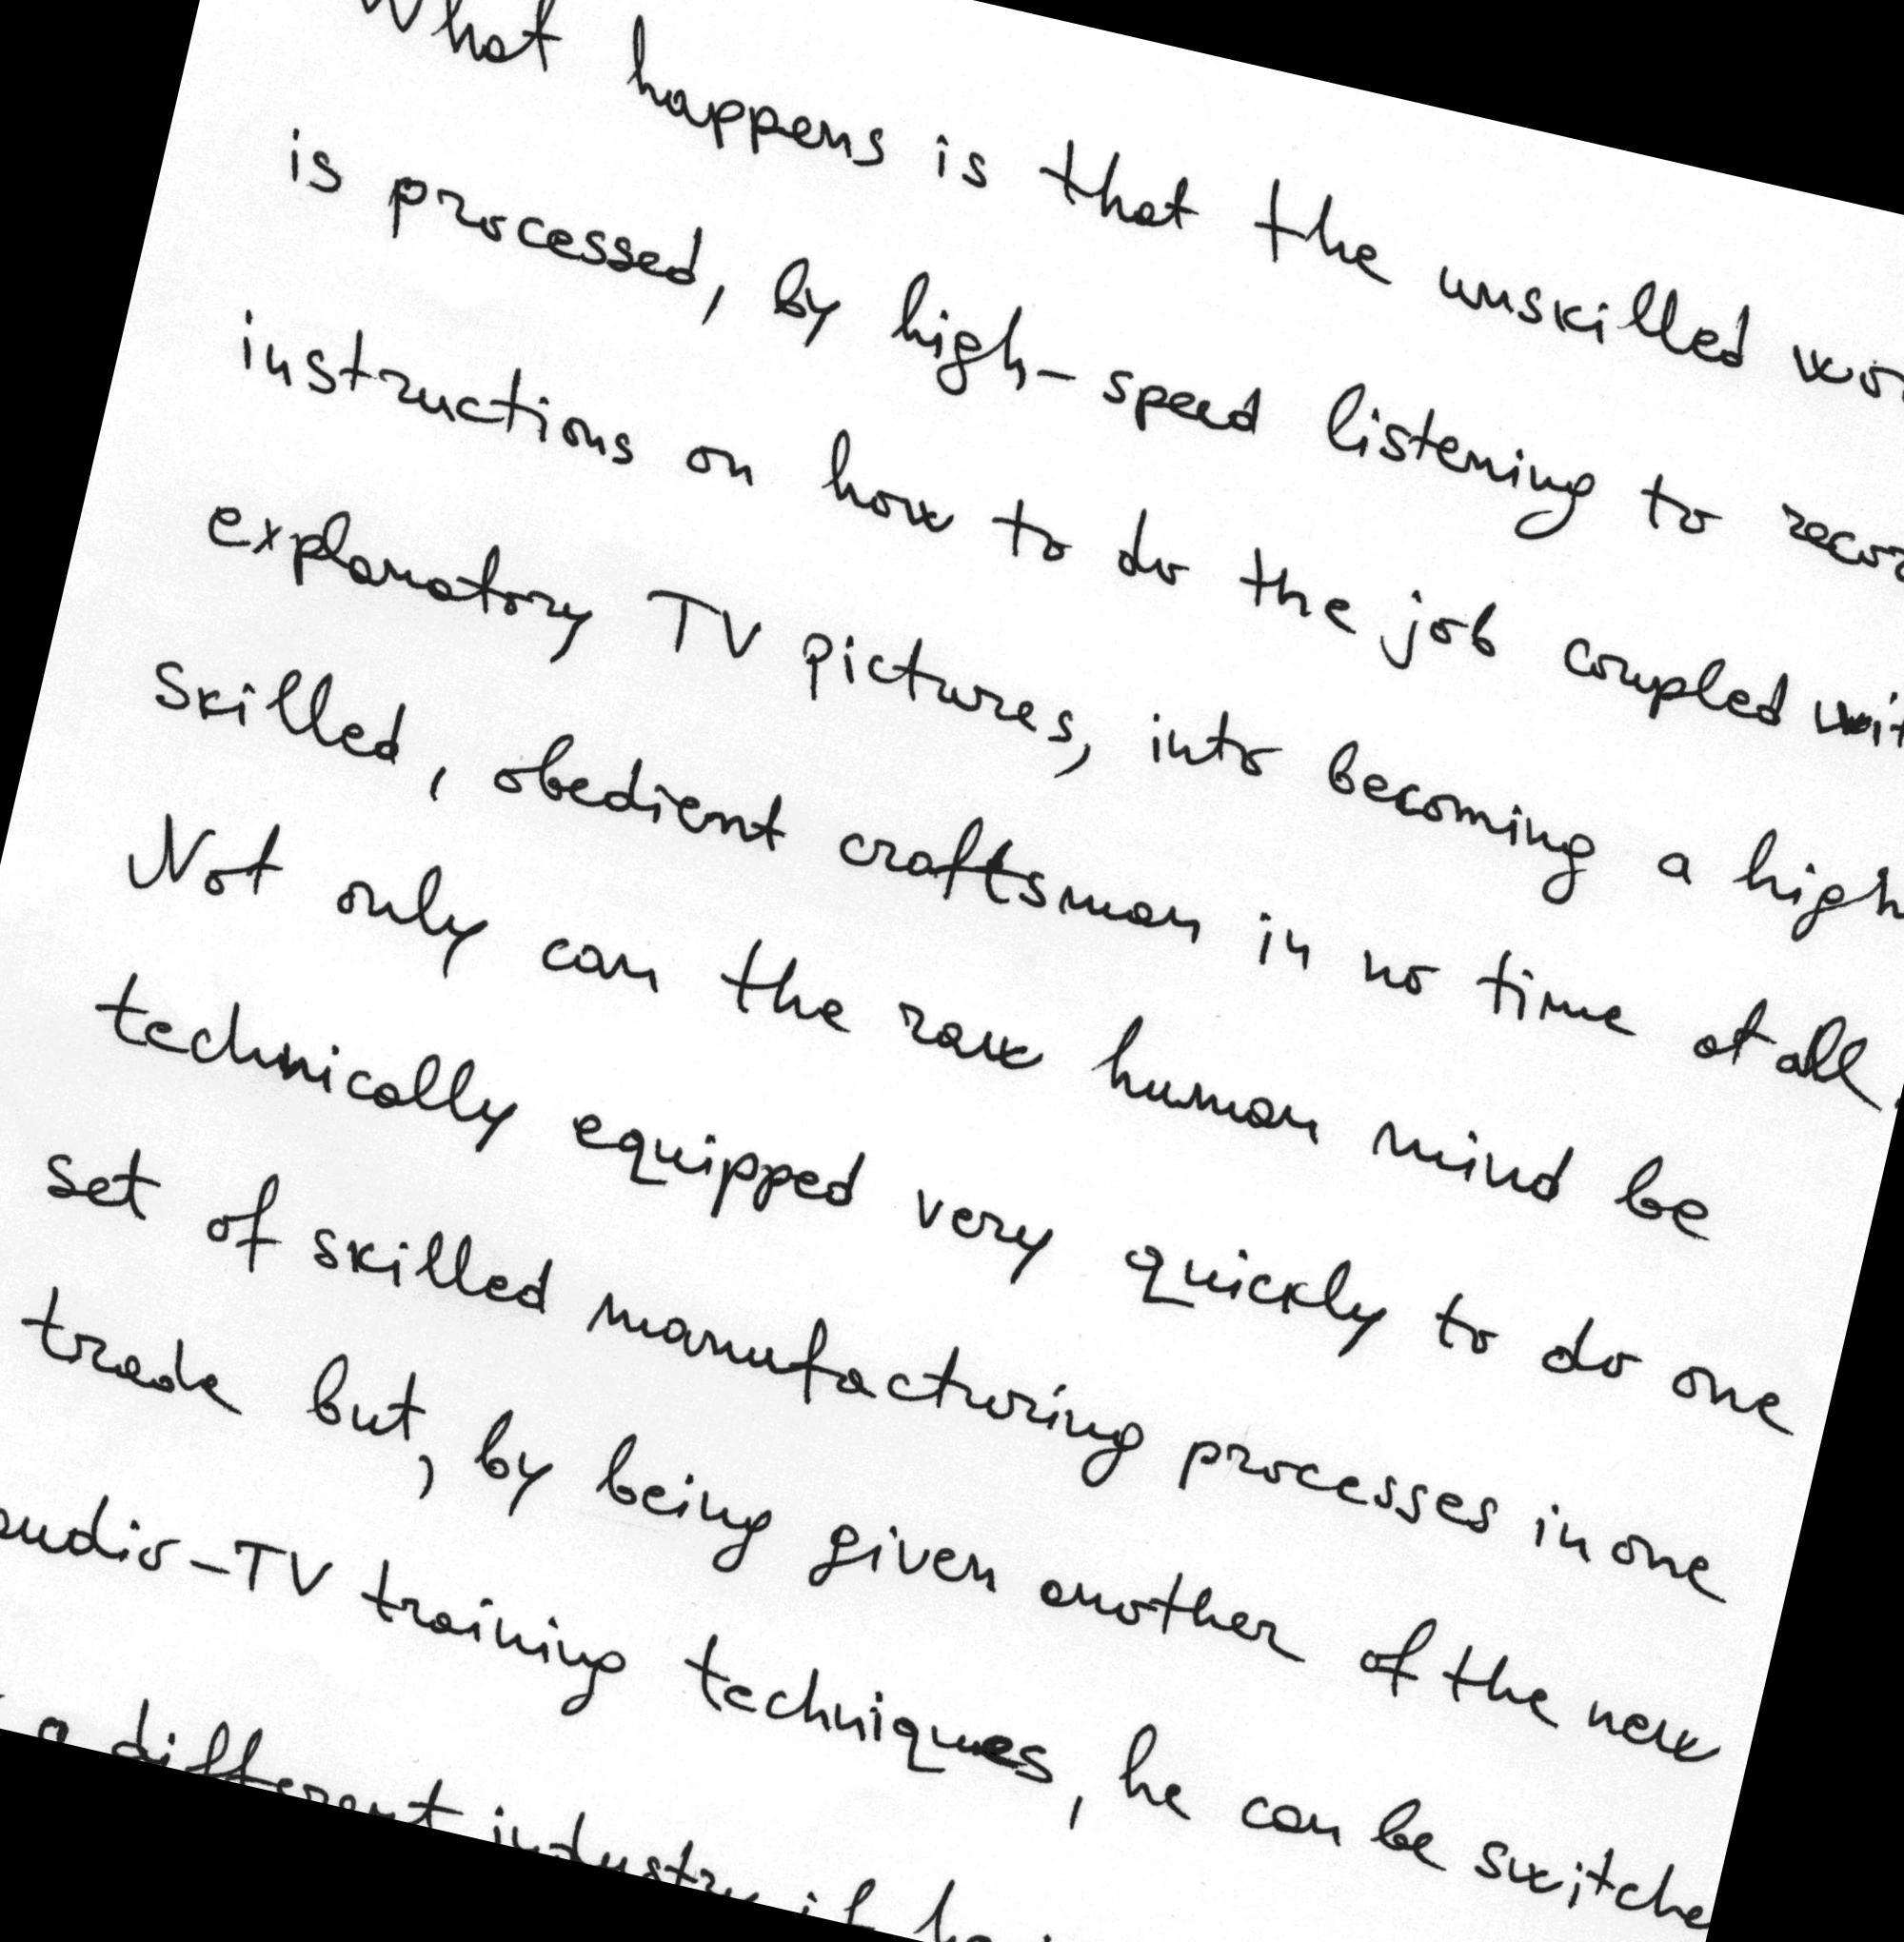 What happens is that the unskilled
is processed, by high-speed listening to
instructions on how to do the job coupled
explanatory TV pictures, into becoming a
skilled, obedient craftsman in no time at all.
Not only can the raw human mind be
technically equipped very quickly to do one
set of skilled manufacturing processes in one
trade but, by being given another of the new
audio-TV training techniques, he can be
a different industry if